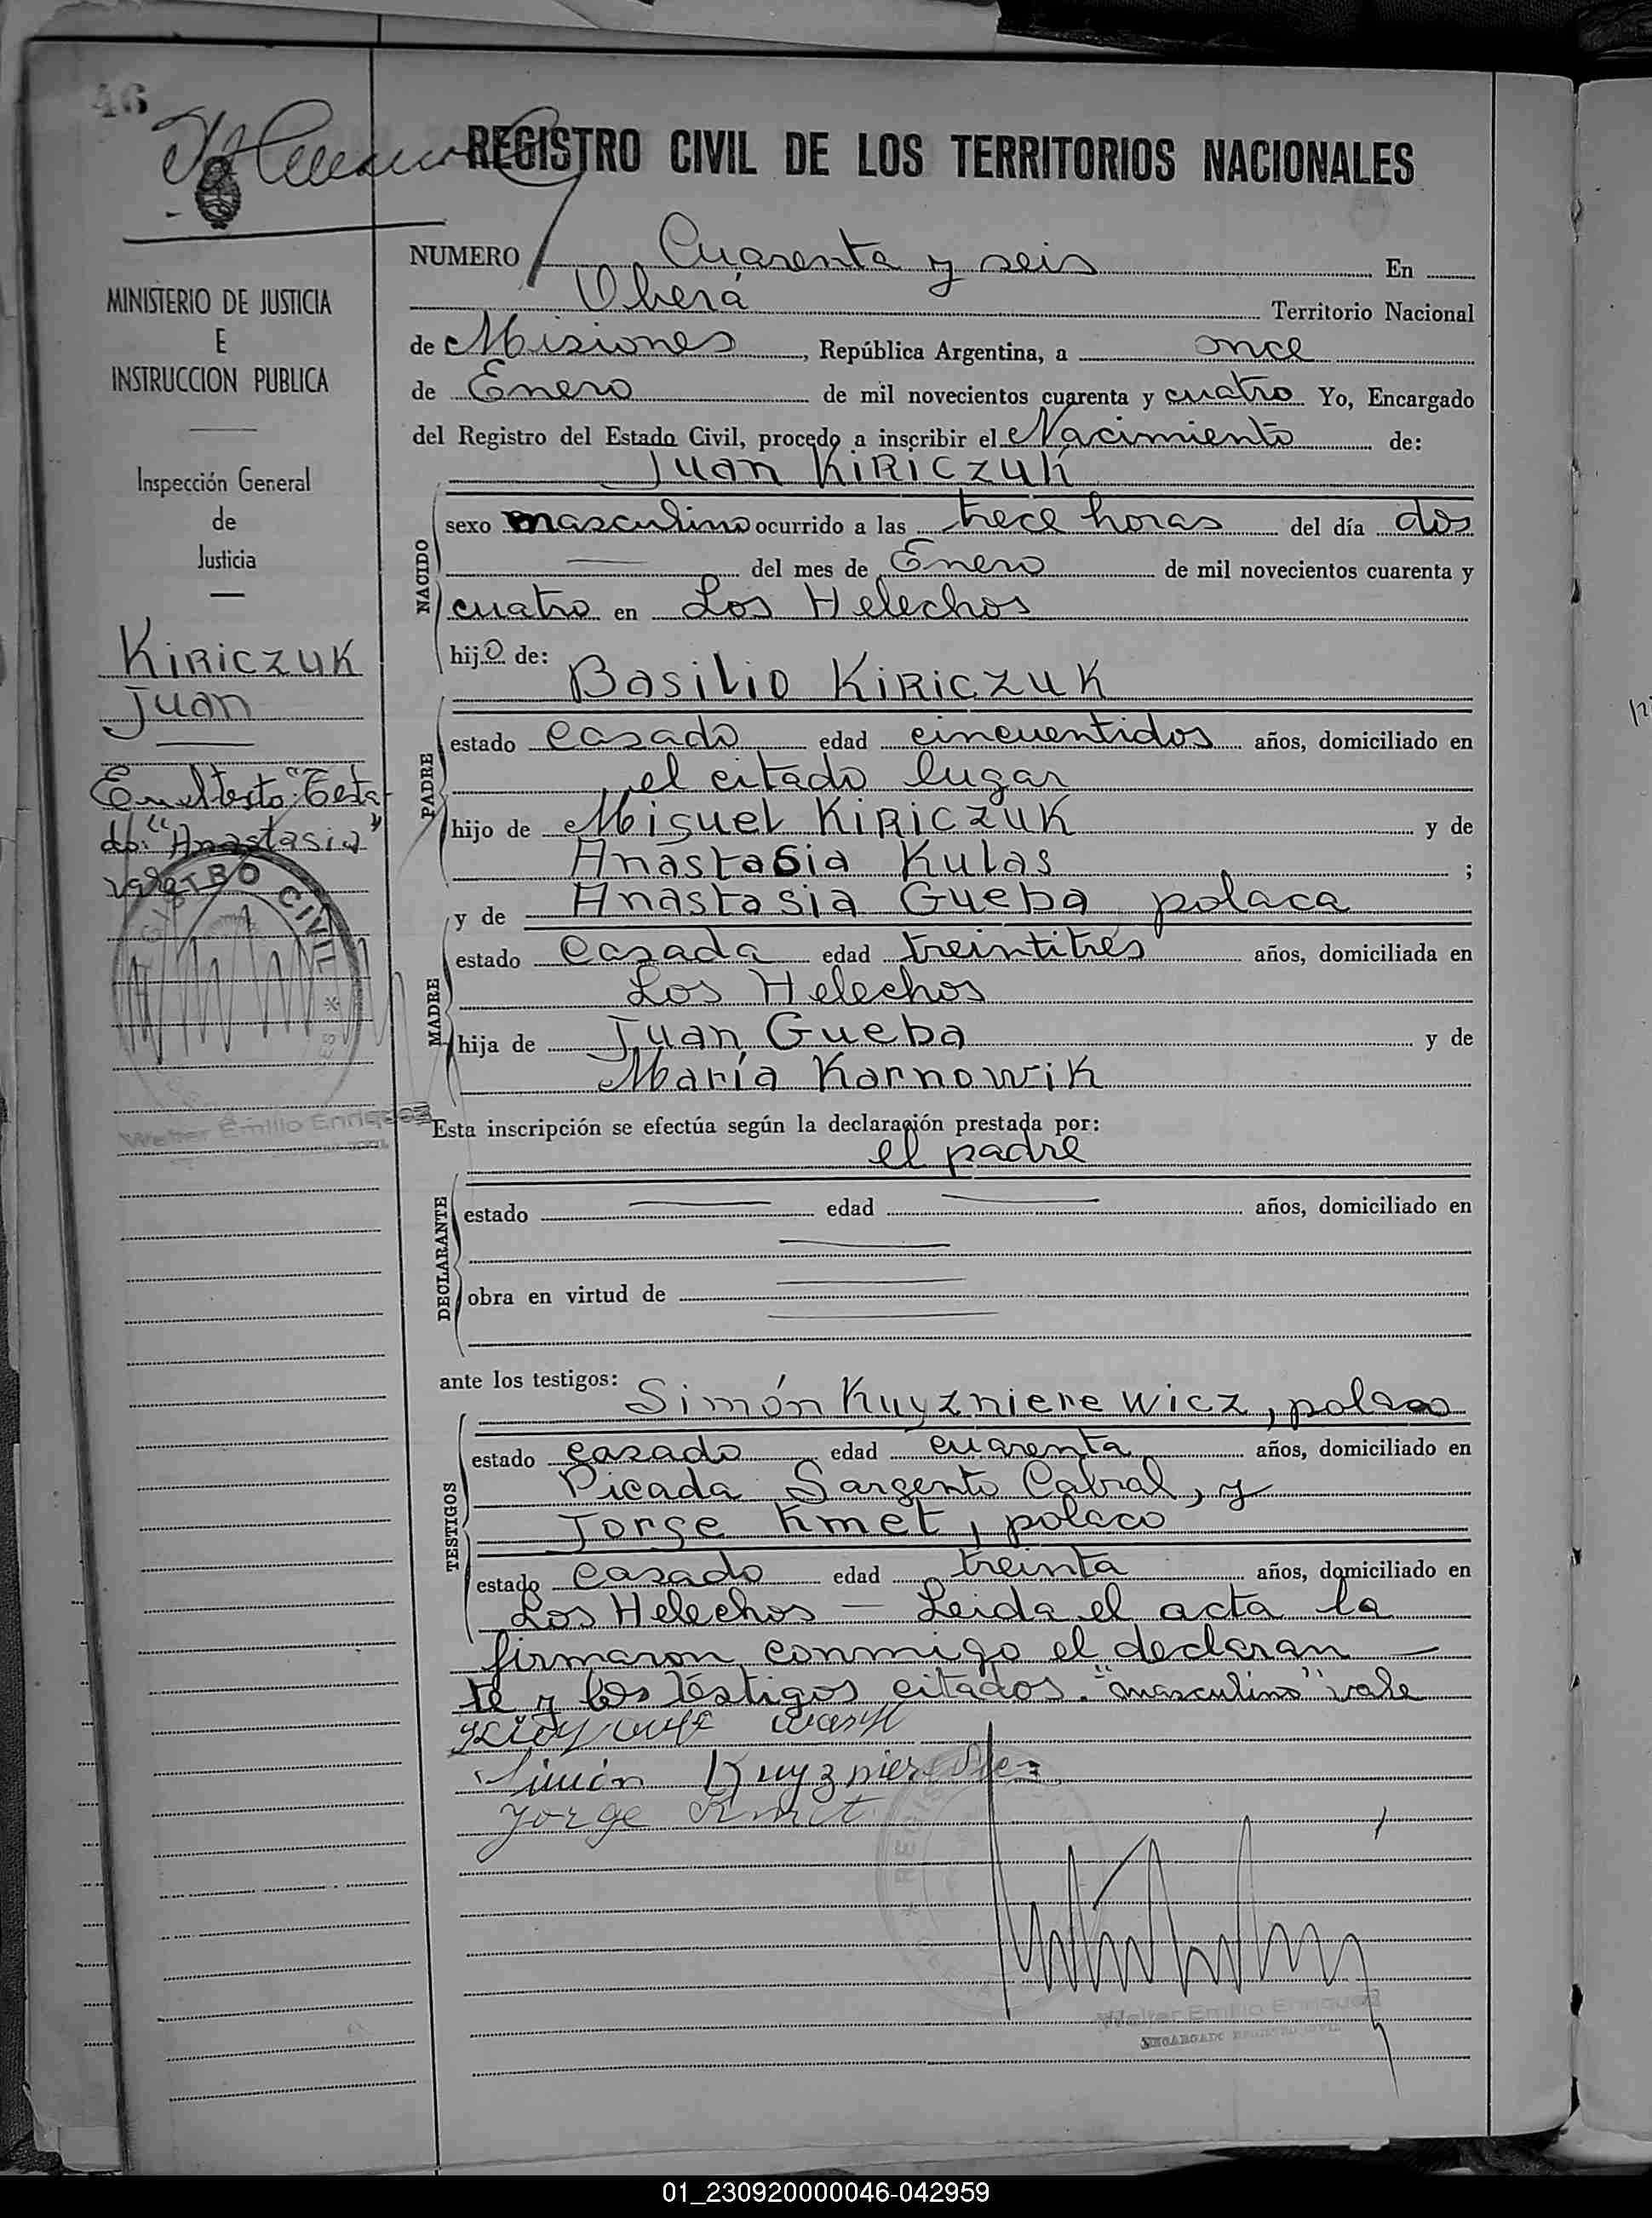 46
REGISTRO CIVIL DE LOS TERRITORIOS NACIONALES
NUMERO Cuarenta y seis En
Oberá Territorio Nacional
de Misiones, República Argentina, a once
de Enero de mil novecientos cuarenta y cuatro Yo, Encargado
del Registro del Estado Civil, procedo a inscribir el Nacimiento de:
Juan Kiriczuk
NACIDO
sexo masculino ocurrido a las trece horas del día dos
del mes de Enero de mil novecientos cuarenta y
cuatro en Los Helechos
hijo de:
Basilio Kiriczuk
PADRE
estado casado edad cincuentidos años, domiciliado en
el citado lugar
hijo de Miguel Kiriczuk y de
Anastasia Kulas ;
y de Anastasia Gueba polaca
MADRE
estado casada edad treintitrés años, domiciliada en
Los Helechos
hija de Juan Gueba y de
María Karnowik
Esta inscripción se efectúa según la declaración prestada por:
el padre
DECLARANTE
estado edad años, domiciliado en
obra en virtud de
ante los testigos:
Simón Kuyznierewicz, polaco
TESTIGOS
estado casado edad cuarenta años, domiciliado en
Picada Sargento Cabral, y
Jorge Kmet, polaco
estado casado edad treinta años, domiciliado en
Los Helechos — Leida el acta la
firmaron conmigo el declaran
te y los testigos citados. "masculino" vale
Simón
Jorge Kmet
Walter Emilio Enriquez
ENCARGADO REGISTRO CIVIL
MINISTERIO DE JUSTICIA
E
INSTRUCCION PUBLICA
Inspección General
de
Justicia
Kiriczuk
Juan
En el testo: "Testa
do: "Anastasia"
vale
REGISTRO CIVIL
Walter Emilio Enriquez
01_230920000046-042959